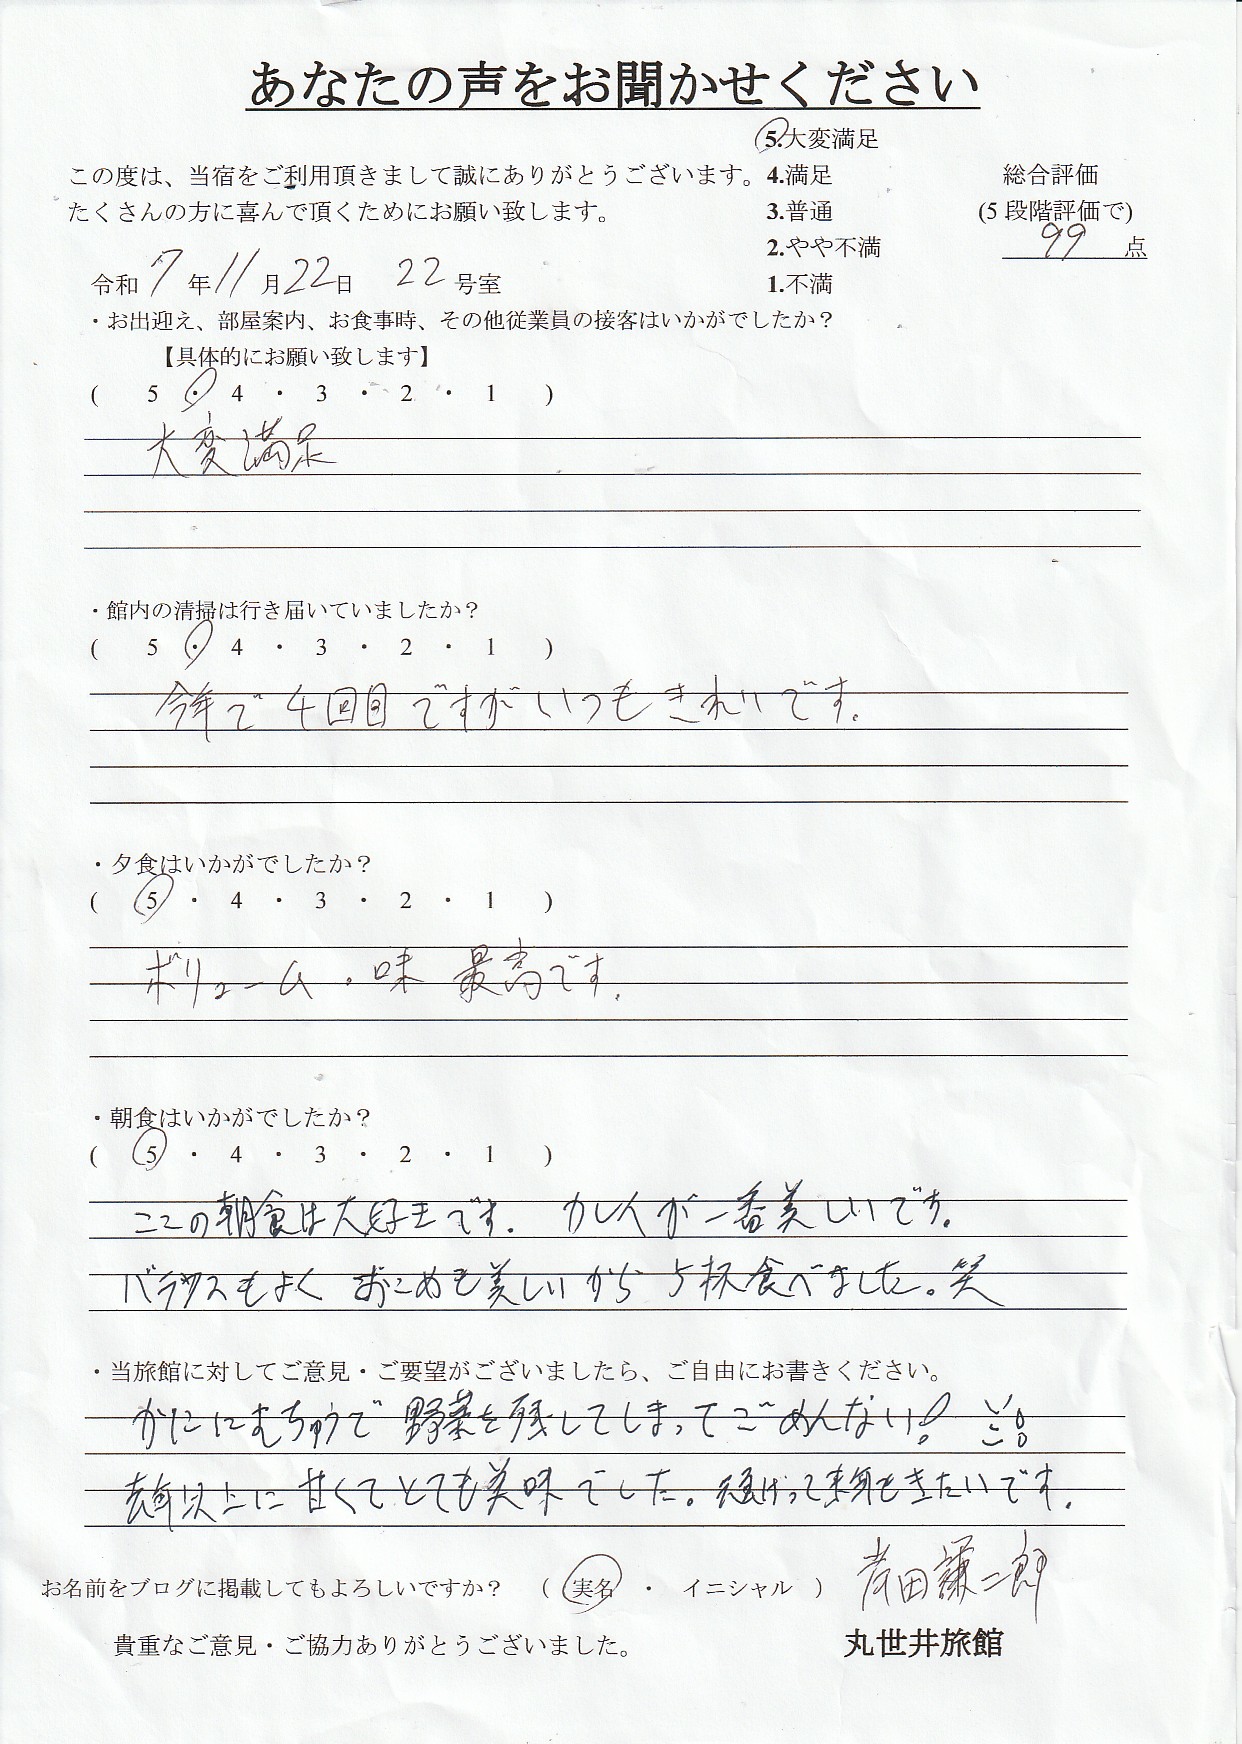 あなたの声をお聞かせください
5.大変満足
この度は、当宿をご利用頂きまして誠にありがとうございます。 4.満足 総合評価
たくさんの方に喜んで頂くためにお願い致します。 3.普通 (5段階評価で)
2.やや不満 99点
令和7年11月22日 22号室 1.不満
・お出迎え、部屋案内、お食事時、その他従業員の接客はいかがでしたか？
【具体的にお願い致します】
( 5 ・ 4 ・ 3 ・ 2 ・ 1 )
大変満足
・館内の清掃は行き届いていましたか？
( 5 ・ 4 ・ 3 ・ 2 ・ 1 )
今年で4回目ですがいつもきれいです。
・夕食はいかがでしたか？
( 5 ・ 4 ・ 3 ・ 2 ・ 1 )
ボリューム・味 最高です。
・朝食はいかがでしたか？
( 5 ・ 4 ・ 3 ・ 2 ・ 1 )
ここの朝食は大好きです. が一番美しいです。
バランスもよく おこめも美しいから 5杯食べました。笑
・当旅館に対してご意見・ご要望がございましたら、ご自由にお書きください。
かににむちゅうで 野菜を残してしまってごめんない!
去年以上に甘くてとても美味でした。 って来年もきたいです.
お名前をブログに掲載してもよろしいですか？ ( 実名 ・ イニシャル ) 岸田謙二郎
貴重なご意見・ご協力ありがとうございました。 丸世井旅館